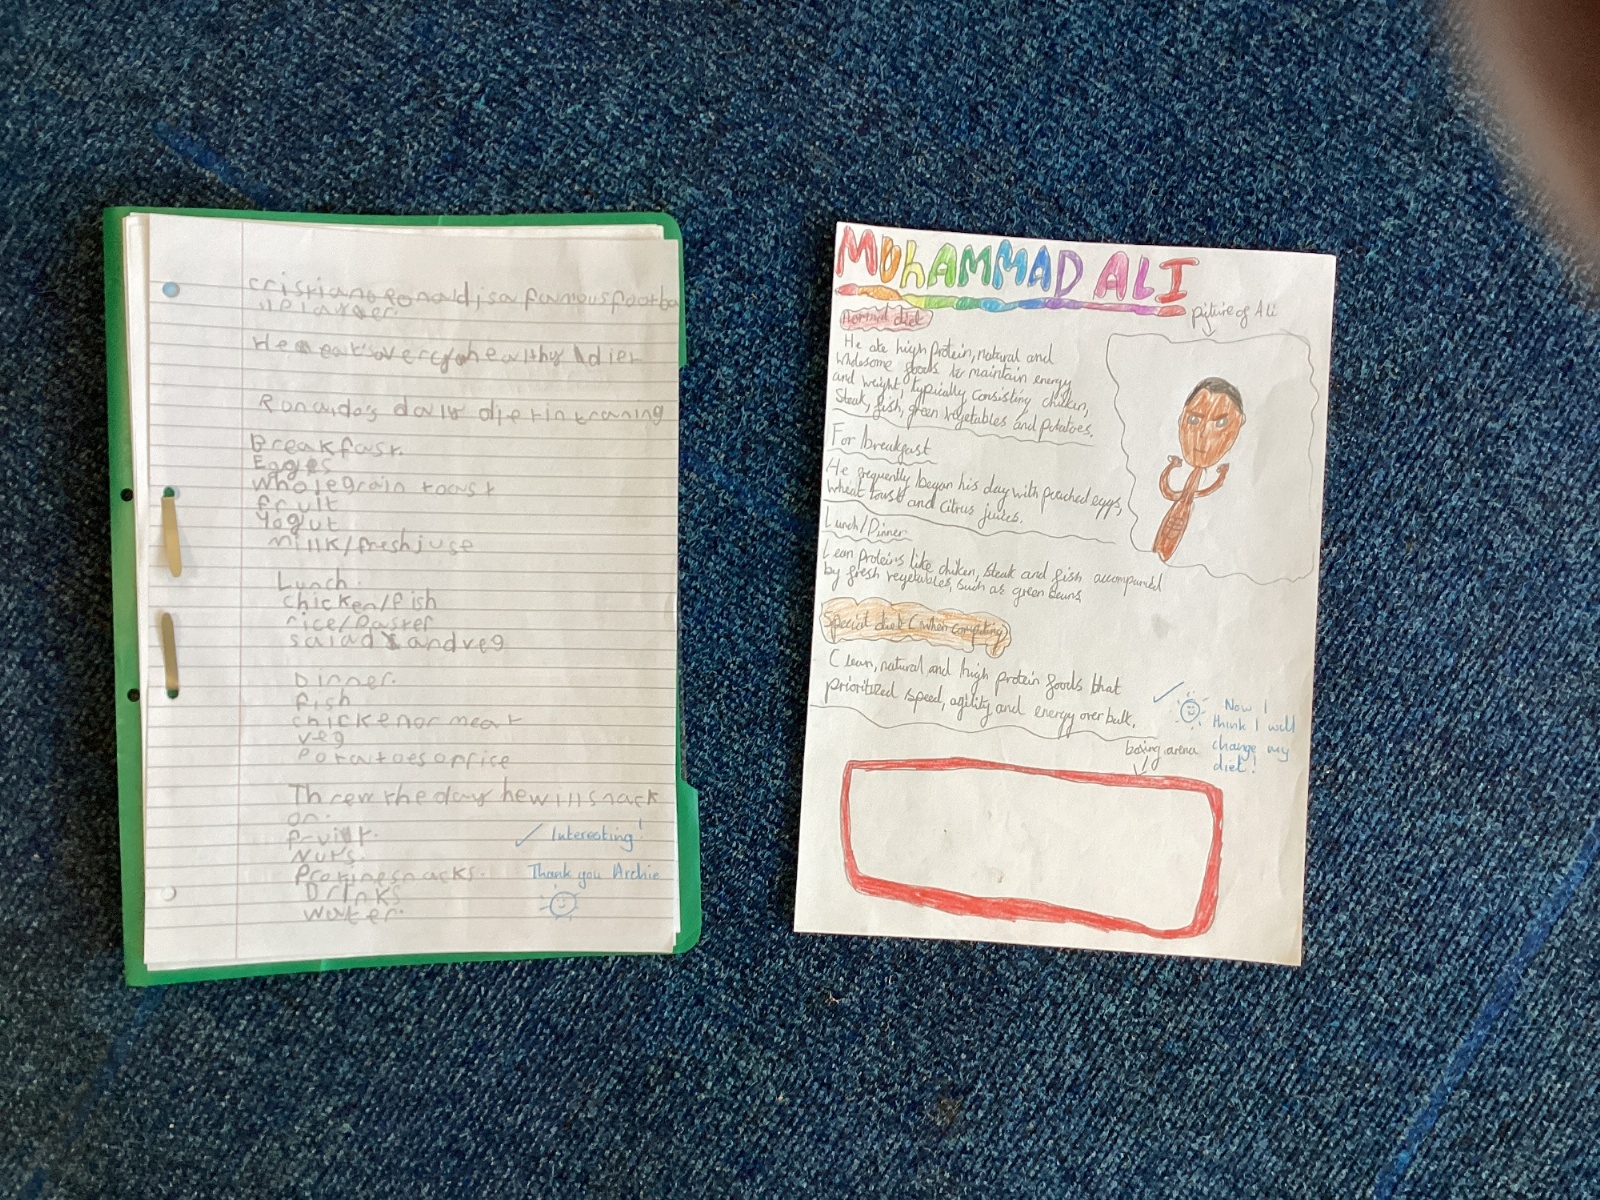 cristiano Ronaldi is a famous footba
ller
He eats a very healthy dier
Ronaldos daily dier in traning
Breakfast.
Egges
whole grain toast
fruit
Yogut
millk/fresh juse
Lunch.
chicken/fish
rice/Paster
salad and veg
Dinner.
fish
chicken or meat
veg
Potatoes or rice
Threw the day he will snack
on.
Fruit.
Nuts.
Protine snacks.
Drinks
water.
Interesting!
Thank you Archie
MUhAMMAD ALI
Normal diet
picture of Ali
He ate high protein, natural and
wholesome foods to maintain energy
and weight, typically consisting chicken,
Steak, fish, green vegetables and potatoes.
For breakfast
He frequently began his day with poached eggs,
wheat toast and citrus juices.
Lunch/Dinner
Lean proteins like chiken, steak and fish accompanied
by fresh vegetables, such as green beans
Special diet (when competing)
Clean, natural and high protein foods that
prioritized speed, agility and energy over bulk.
Now I
think I will
change my
diet!
boxing arena